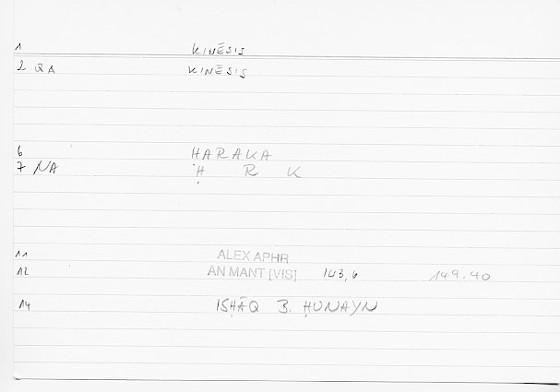 1 KINĒSIS
2 QA KINĒSIS
6 HARAKA
7 NA Ḥ R K
11 ALEX APHR
12 AN MANT [VIS] 143,6 149.40
14 ISḤĀQ B. ḤUNAYN